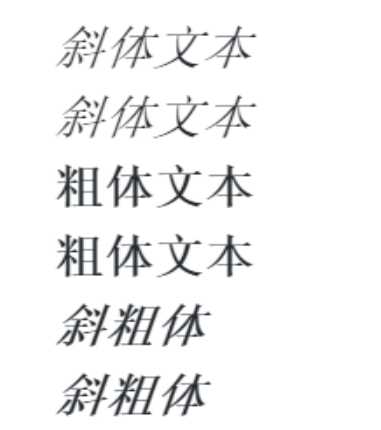 斜体文本
斜体文本
粗体文本
粗体文本
斜粗体
斜粗体